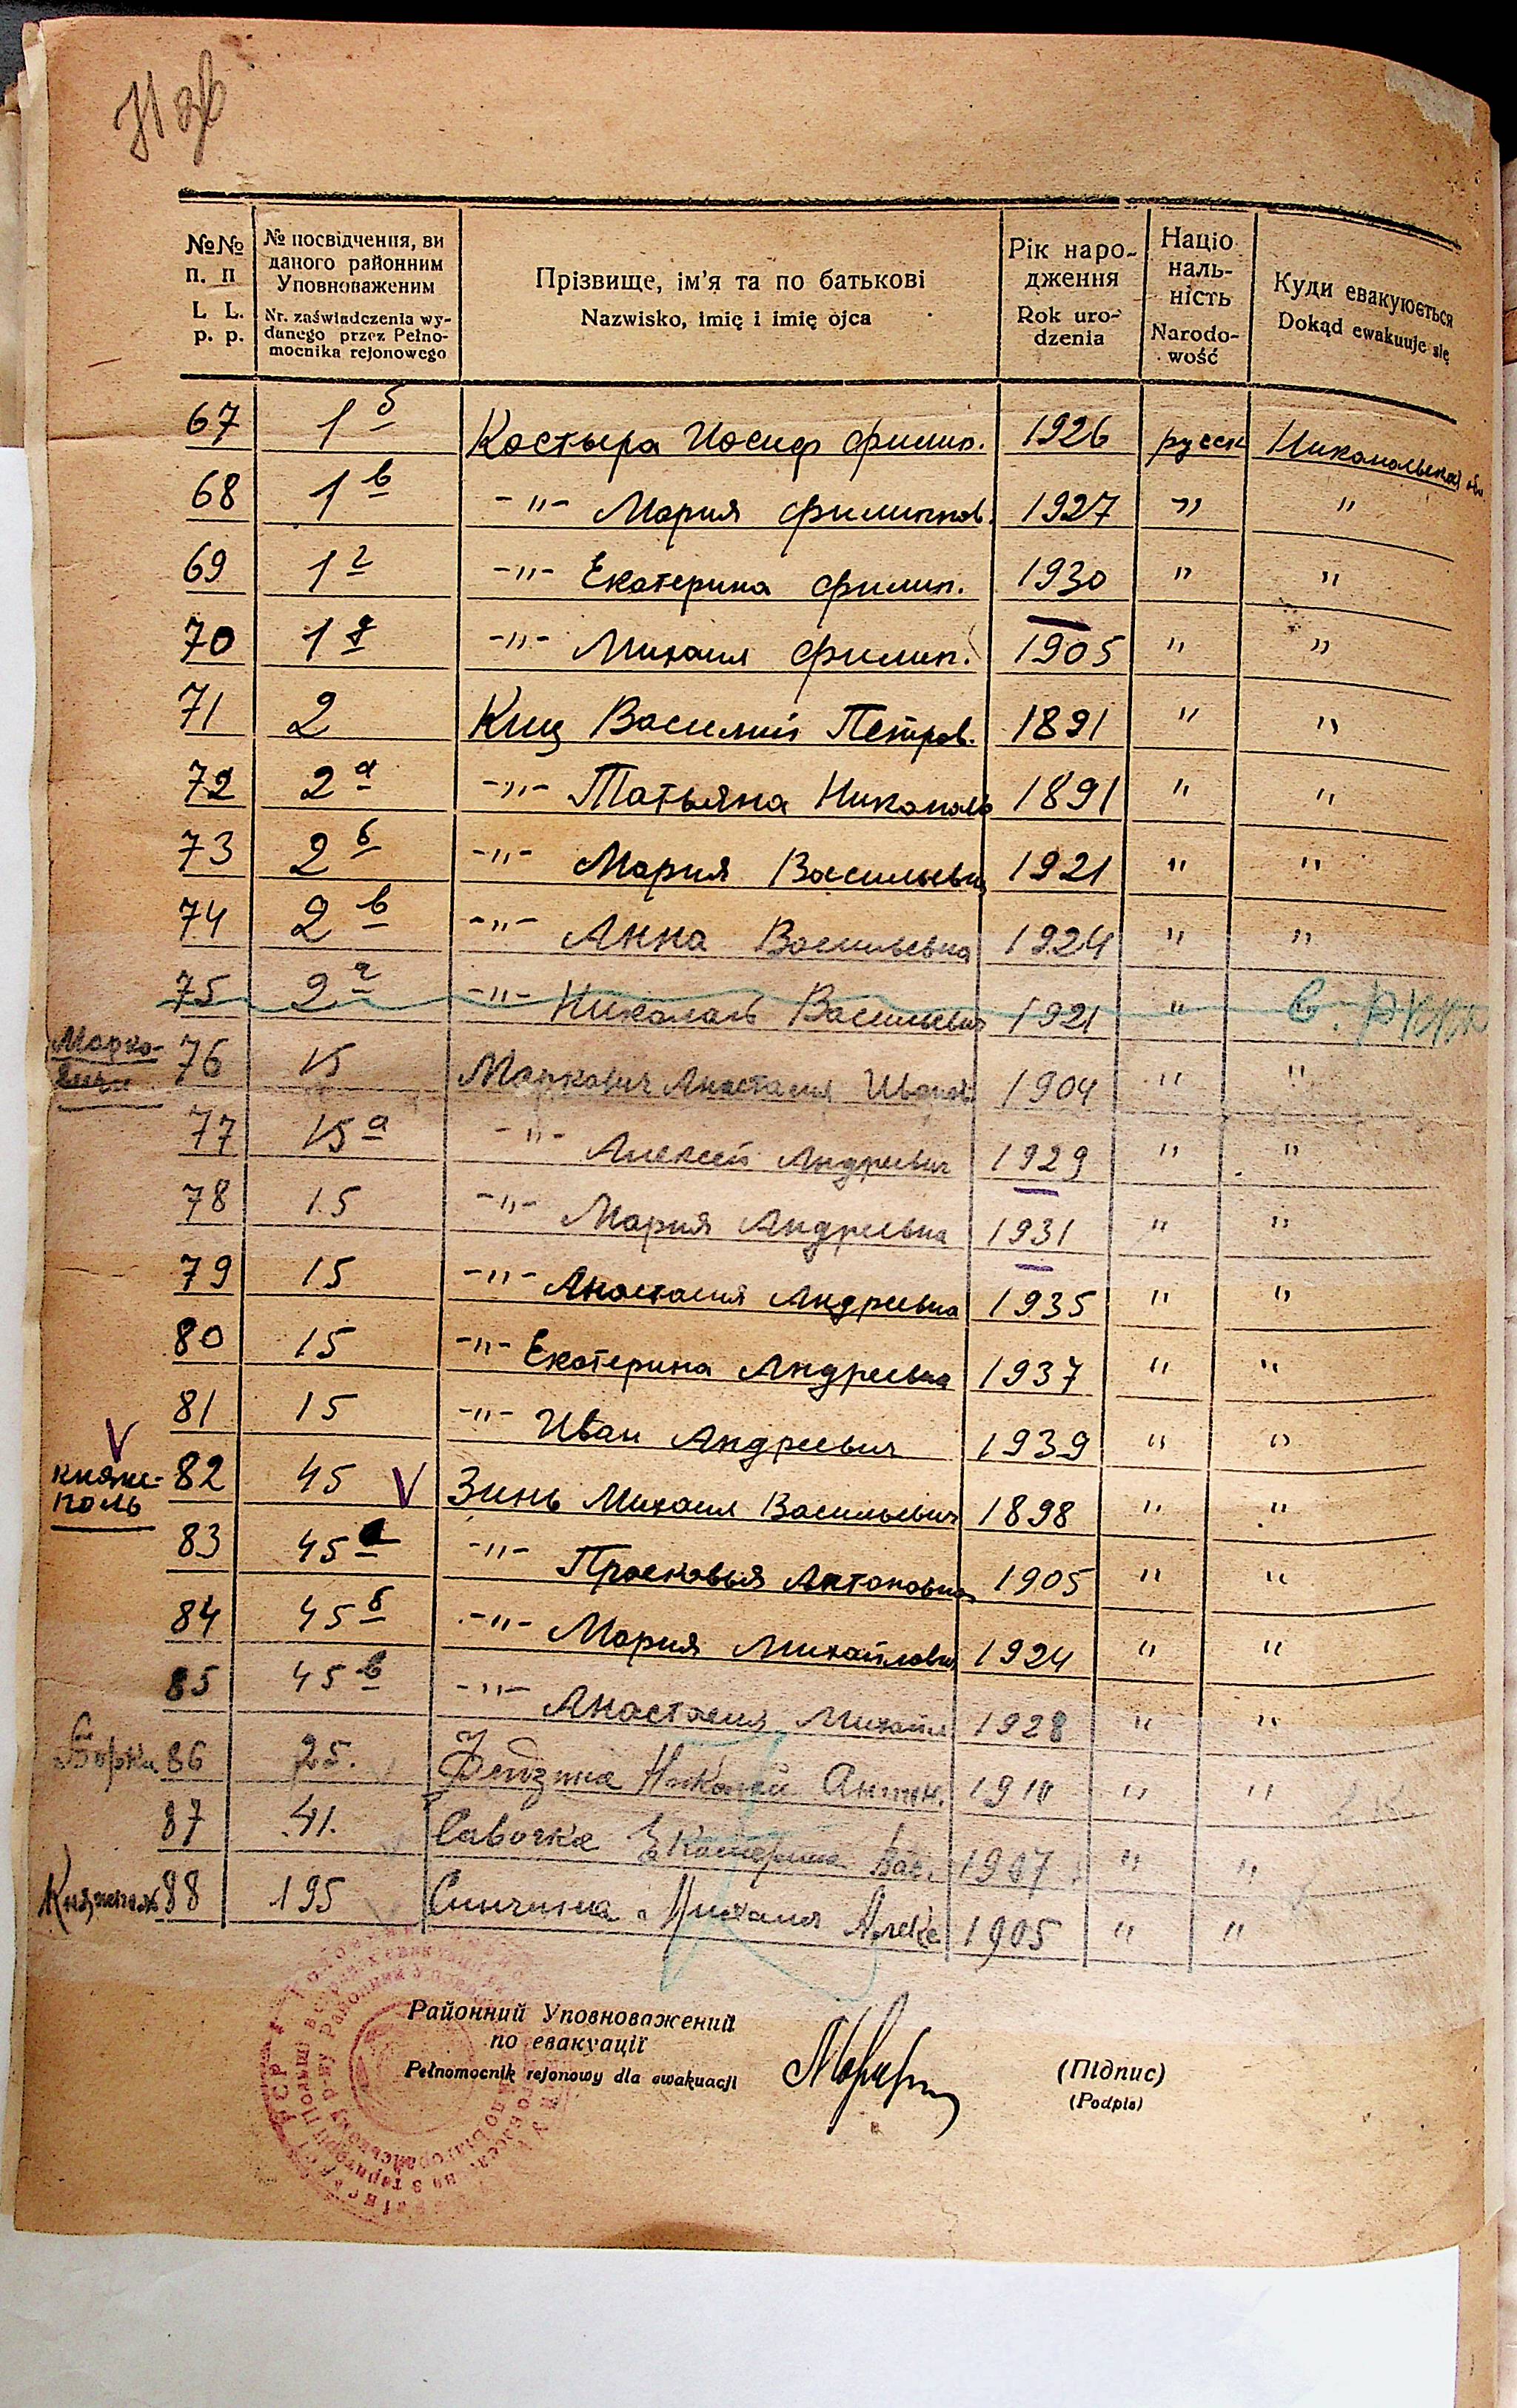 №№ п. п L. L. p. p.
№ посвідчення, ви даного районним Уповноваженим
Nr. zaświadczenia wy- danego przez Pełno- mocnika rejonowego
Прізвище, ім'я та по батькові
Nazwisko, imię i imię ojca
Рік наро- дження
Rok uro- dzenia
Націо наль- ність
Narodo- wość
Куди евакуюється
Dokąd ewakuuje się
67 1б Костыра Иосиф Филип. 1926 русск
68 1в -"- Мария Филиппов. 1927 " "
69 1г -"- Екатерина Филип. 1930 " "
70 1д -"- Михаил Филип. 1905 " "
71 2 Кищ Василий Петров. 1891 " "
72 2а -"- Татьяна Николаев 1891 " "
73 2б -"- Мария Васильевн 1921 " "
74 2в -"- Анна Васильевна 1924 " "
75 2г -"- Николай Васильевич 1921 " в. РККА
Марко- вичи 76 15 Маркович Анастасия Иванов. 1904 " "
77 15а -"- Алексей Андреевич 1929 " "
78 15 -"- Мария Андреевна 1931 " "
79 15 -"- Анастасия Андреевна 1935 " "
80 15 -"- Екатерина Андреевна 1937 " "
81 15 -"- Иван Андреевич 1939 " "
V
княже- поль 82 45 V Зинь Михаил Васильевич 1898 " "
83 45а -"- Прасковья Антоновна 1905 " "
84 45б -"- Мария Михайловн 1924 " "
85 45в -"- Анастасия Михайл. 1928 " "
Борки 86 25. Николай Антон. 1910 " "
87 41. Савочка Екатерина Вас. 1907 " "
Княжполь 88 195 Михаил Алекс 1905 " "
Районний Уповноважений
по евакуації
Pełnomocnik rejonowy dla ewakuacji
(Підпис)
(Podpis)